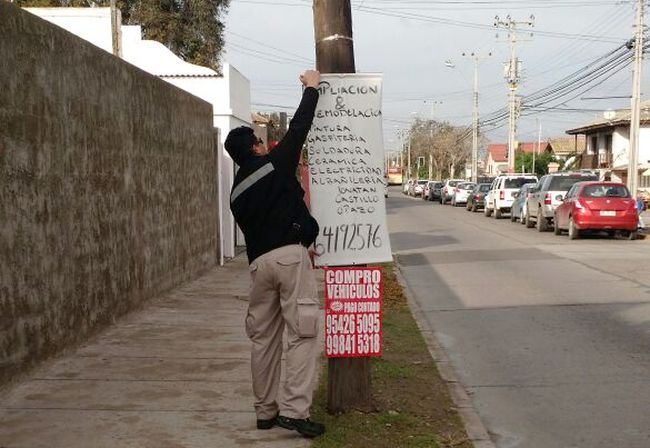 MPLIACION
&
REMODELACION
PINTURA
GASFITERIA
SOLDADURA
CERAMICA
ELECTRICIDAD
ALBAÑILERIA
JONATAN
CASTILLO
OPAZO
64192576
COMPRO
VEHICULOS
PAGO CONTADO
95426 5095
99841 5318